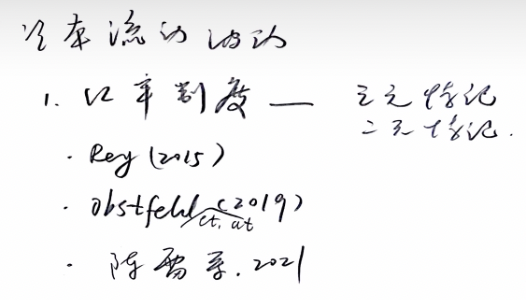 资本流动波动
1. 汇率制度 — 三元悖论
二元悖论.
· Rey (2015)
· Obstfeld et. at (2019)
· 陈雷等. 2021